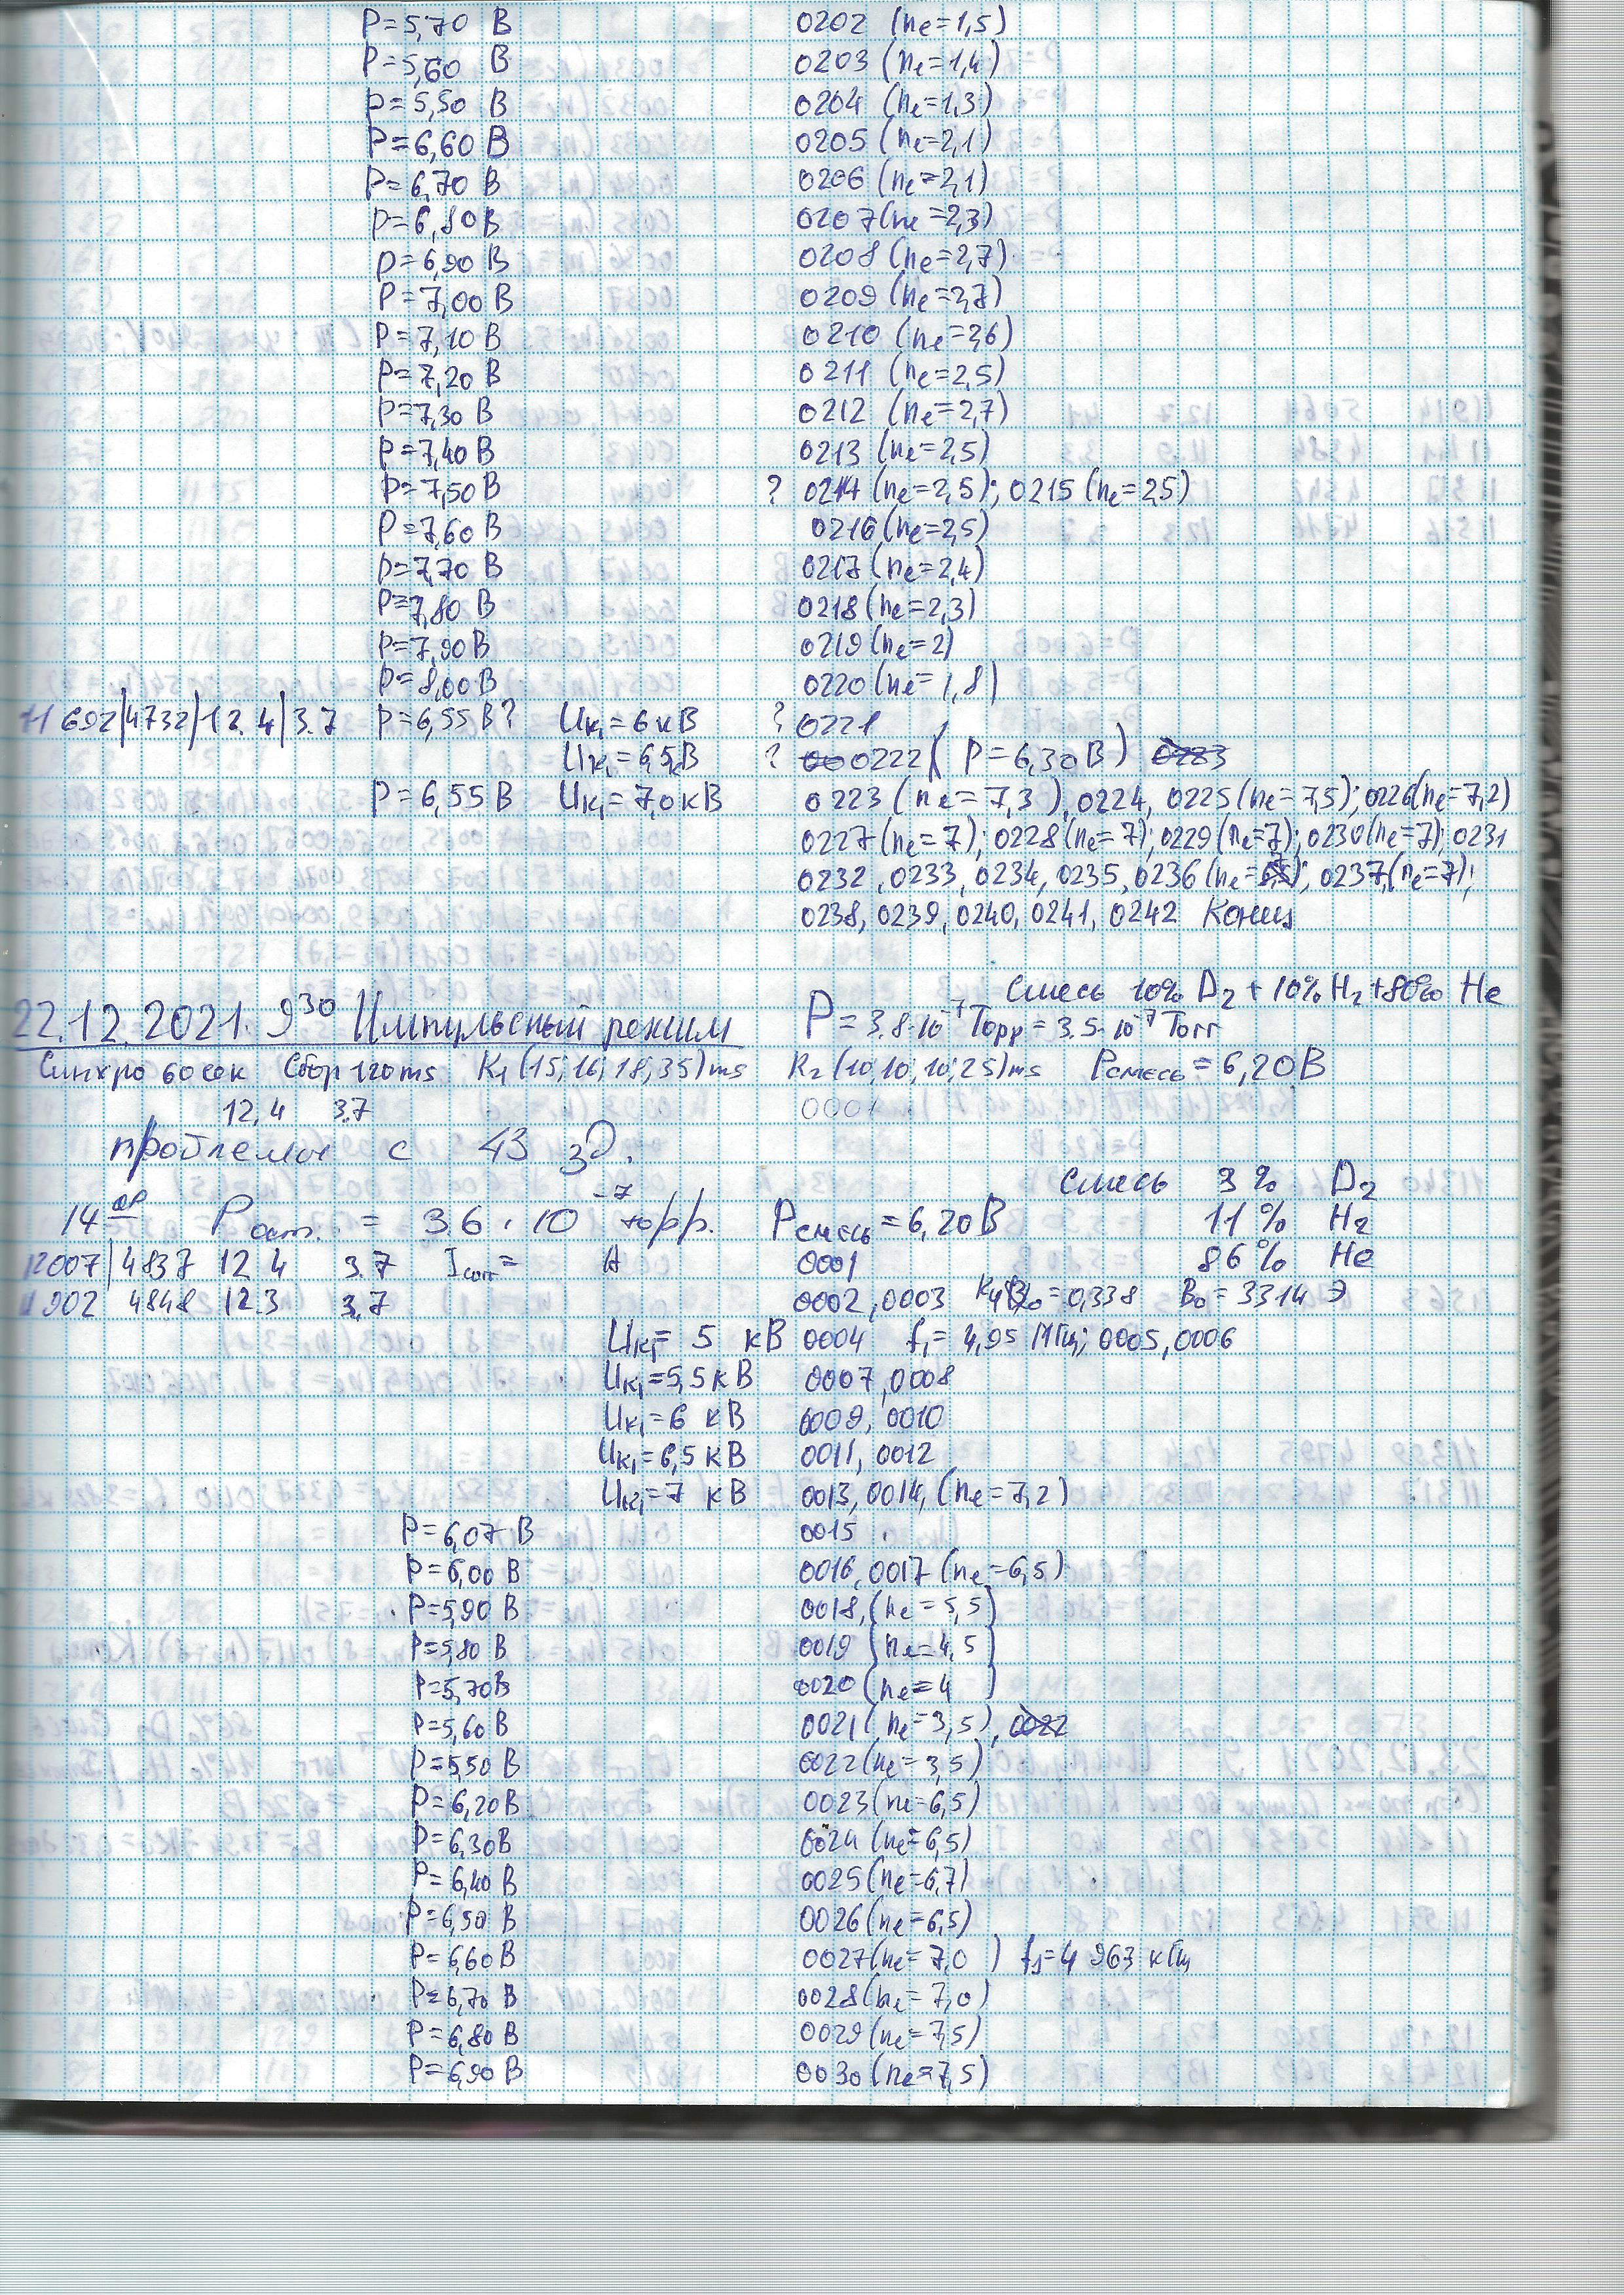 P=5,70 В 0202 (ne=1,5)
P=5,60 В 0203 (ne=1,4)
P=5,50 В 0204 (ne=1,3)
P=6,60 В 0205 (ne=2,1)
P=6,70 В 0206 (ne=2,1)
P=6,80 В 0207 (ne=2,3)
P=6,90 В 0208 (ne=2,7)
P=7,00 В 0209 (ne=2,7)
P=7,10 В 0210 (ne=2,6)
P=7,20 В 0211 (ne=2,5)
P=7,30 В 0212 (ne=2,7)
P=7,40 В 0213 (ne=2,5)
P=7,50 В ? 0214 (ne=2,5); 0215 (ne=2,5)
P=7,60 В 0216 (ne=2,5)
P=7,70 В 0217 (ne=2,4)
P=7,80 В 0218 (ne=2,3)
P=7,90 В 0219 (ne=2)
P=8,00 В 0220 (ne=1,8)
11 692|4732|12.4|3.7 P=6,55 В? Uк1=6 кВ ? 0221
Uк1=6,5кВ ? 0222 (P=6,30 В)
P=6,55 В Uк1=7,0 кВ 0223 (ne=7,3), 0224, 0225 (ne=7,5); 0226 (ne=7,2)
0227 (ne=7); 0228 (ne=7); 0229 (ne=7); 0230 (ne=7); 0231
0232, 0233, 0234, 0235, 0236 (ne= ); 0237, (ne=7);
0238, 0239, 0240, 0241, 0242 Конец
Смесь 10% D2 + 10% H2 + 80% He
22.12.2021. 9³⁰ Импульсный режим P = 3.8·10⁻⁷ Торр = 3.5·10⁻⁷ Torr
Синхро 60 сек Сбор 120 ms K1 (15; 16; 18; 35) ms K2 (10; 10; 10; 25) ms Pсмесь = 6,20 В
12,4 3.7 0001
проблемы с 43 зд.
Смесь 3% D2
14 Pост. = 3.6·10⁻⁷ торр. Pсмесь = 6,20 В 11% H2
12007|4837 12.4 3.7 Iсоп= А 0001 86% He
11902 4848 12.3 3.7 0002, 0003 =0,338 B0 = 3314 Э
Uк1= 5 кВ 0004 f1= 4,95 МГц; 0005, 0006
Uк1=5,5 кВ 0007, 0008
Uк1=6 кВ 0009, 0010
Uк1=6,5 кВ 0011, 0012
Uк1=7 кВ 0013, 0014, (ne=7,2)
P=6,07 В 0015
P=6,00 В 0016, 0017 (ne=6,5)
P=5,90 В 0018, (ne=5,5)
P=5,80 В 0019 (ne=4,5)
P=5,70 В 0020 (ne=4)
P=5,60 В 0021 (ne=3,5), 0022
P=5,50 В 0022 (ne=3,5)
P=6,20 В 0023 (ne=6,5)
P=6,30 В 0024 (ne=6,5)
P=6,40 В 0025 (ne=6,7)
P=6,50 В 0026 (ne=6,5)
P=6,60 В 0027 (ne=7,0) f1=4 963 кГц
P=6,70 В 0028 (ne=7,0)
P=6,80 В 0029 (ne=7,5)
P=6,90 В 0030 (ne=7,5)